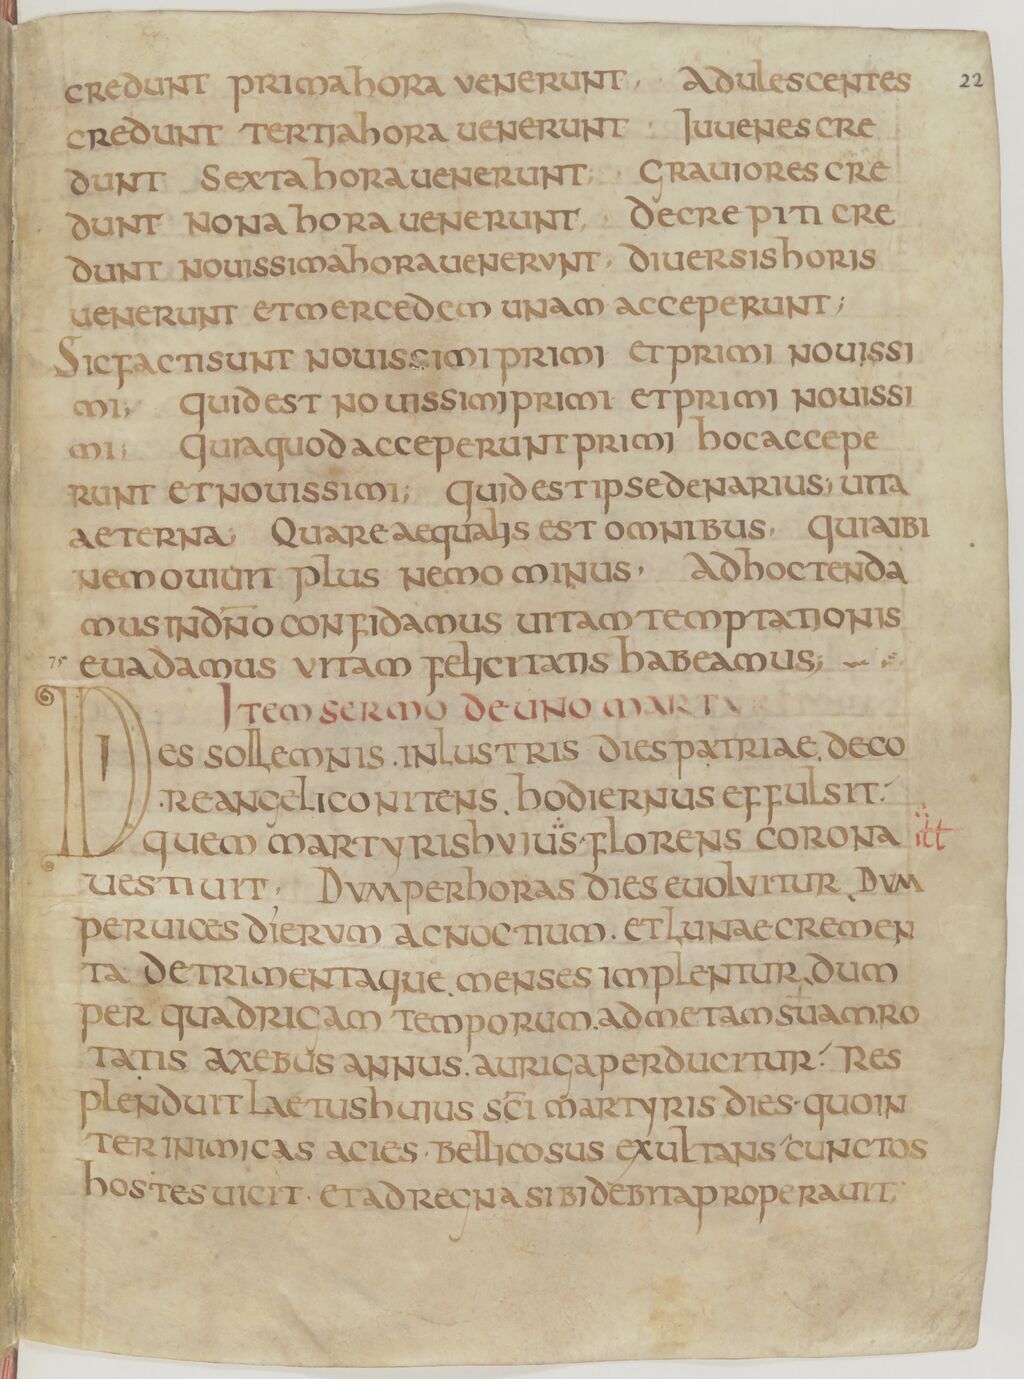 credunt prima hora venerunt, Adulescentes 22
credunt tertia hora uenerunt · Iuuenes cre
dunt Sexta hora uenerunt; Grauiores cre
dunt nona hora uenerunt, Decrepiti cre
dunt nouissima hora uenervnt, diuersis horis
uenerunt et mercedem unam acceperunt;
Sic facti sunt nouissimi primi et primi nouissi
mi; quid est nouissimi primi et primi nouissi
mi; Quia quod acceperunt primi hoc accepe
runt et nouissimi; quid est ipse denarius; uita
aeterna; Quare aequalis est omnibus, quia ibi
nemo uiuit plus nemo minus, Ad hoc tenda
mus in dn̄o confidamus uitam temptationis
75 euadamus vitam felicitatis habeamus;
Item sermo de uno marty
Dies sollemnis . inlustris dies patriae, deco
re angelico nitens, hodiernus effulsit.
quem martyris hvius florens corona itt
uestiuit, Dvm per horas dies euolvitur, Dvm
per uices diervm ac noctium. et lunae cremen
ta detrimentaque, menses implentur, dum
per quadrigam temporum. ad metam suam ro
tatis axebus annus. auriga perducitur. Res
plenduit laetus huius sc̄i martyris dies · quo in
ter inimicas acies · bellicosus exultans cunctos
hostes uicit · et ad regna sibi debita properauit;